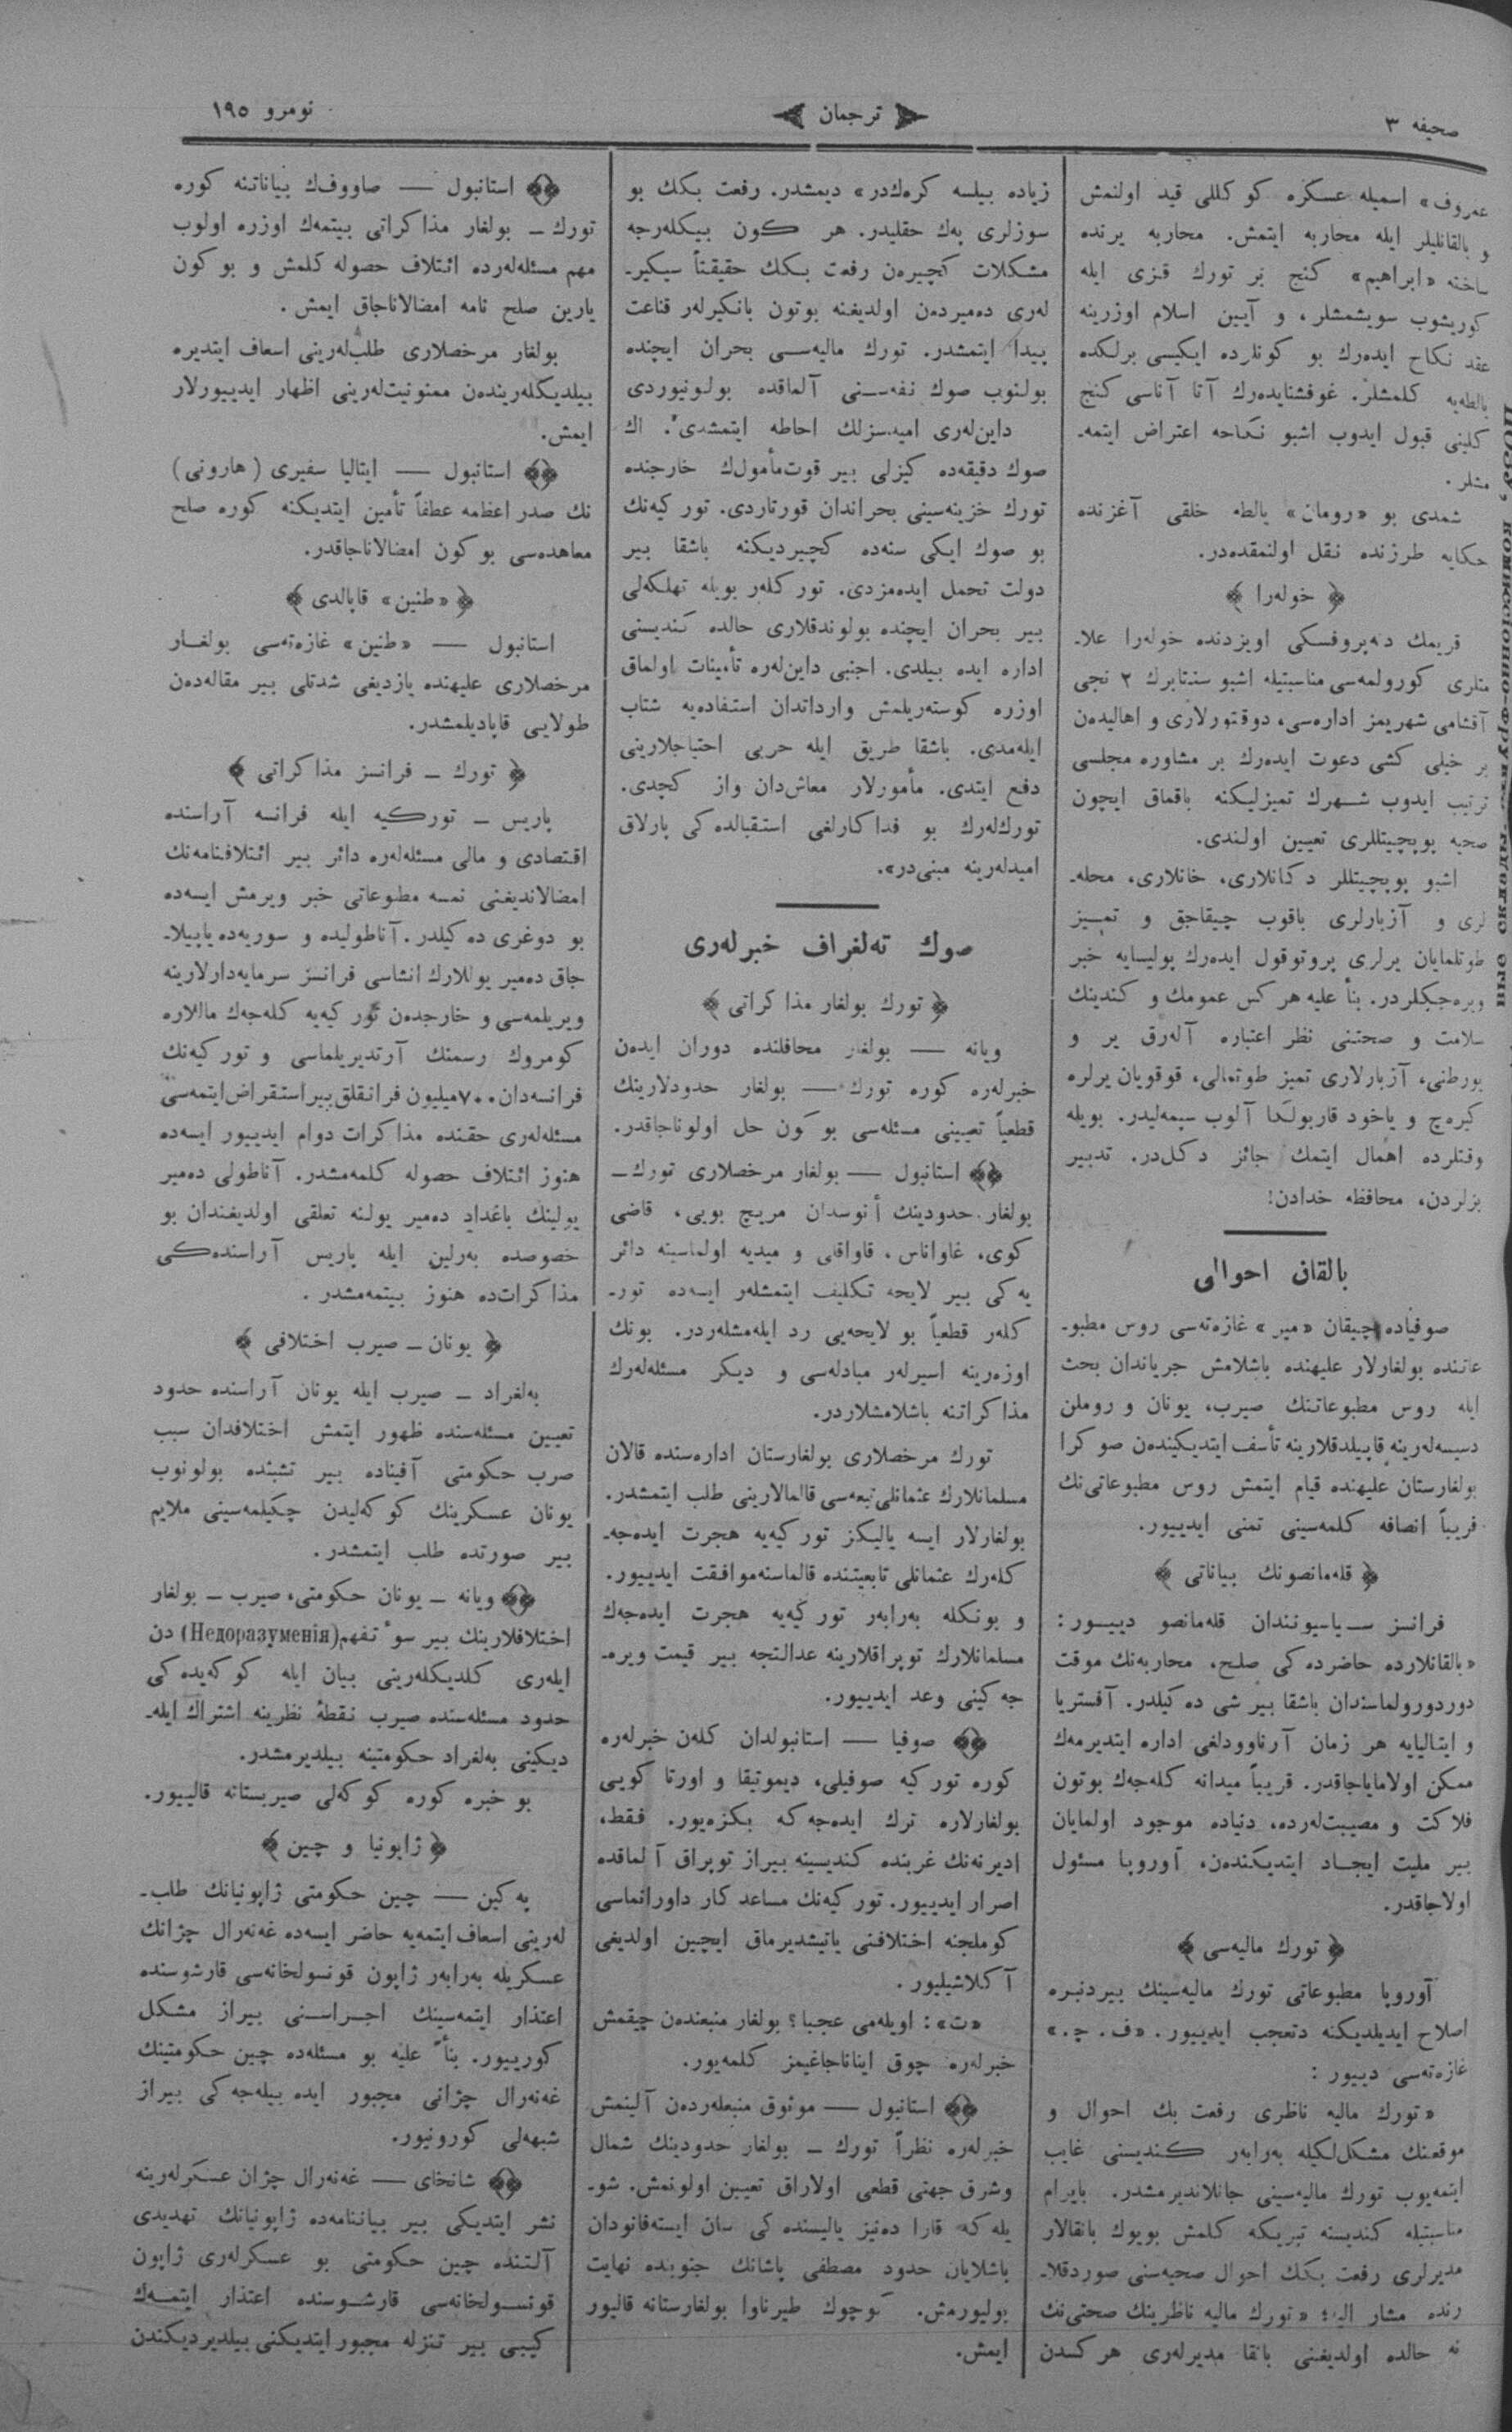 صحیفه ۳
ترجمان
نومرو ۱۹۵
عمروف» اسمیله عسکره کوکللی قید اولنمش
و بالقانلیلر ایله محاربه ایتمش. محاربه یرنده
ساخته «ابراهیم» کنج بر تورك قزی ایله
کوریشوب سویشمشلر، و آیین اسلام اوزرینه
عقد نکاح ایده‌رك بو کونلرده ایکیسی برلکده
یالطه‌یه کلمشلر. غوفشنایده‌رك آتا آناسی کنج
کلینی قبول ایدوب اشبو نکاحه اعتراض ایتمه‌ـ
مشلر.
شمدی بو «رومان» یالطه خلقی آغزنده
حکایه طرزنده نقل اولنمقده‌در.
﴿ خوله‌را ﴾
قریمك دنه‌پروفسکی اویزدنده خوله‌را علاـ
متلری کورولمه‌سی مناسبتیله اشبو سنتابرك ۲ نجی
آقشامی شهریمز اداره‌سی، دوقتورلاری و اهالیدەن
بر خیلی کشی دعوت ایده‌رك بر مشاوره مجلسی
ترتیب ایدوب شهرك تمیزلیکنه باقماق ایچون
صحیه پوپچیتللری تعیین اولندی.
اشبو پوپچیتللر دکانلاری، خانلاری، محله‌ـ
لری و آزبارلری باقوب چیقاجق و تمیز
طوتلمایان یرلری پروتوقول ایده‌رك پولیسایه خبر
ویره‌جکلردر. بنأ علیه هر کس عمومك و کندینك
سلامت و صحتنی نظر اعتباره آله‌رق یر و
یورطنی، آزبارلاری تمیز طوتمالی، قوقویان یرلره
کیره‌چ و یاخود قاربولکا آلوب سیمه‌لیدر. بویله
وقتلرده اهمال ایتمك جائز دکل‌در. تدبیر
بزلردن، محافظه خدادن!
بالقان احوالی
صوفیاده چیقان «میر» غازه‌ته‌سی روس مطبوـ
عاتنده بولغارلار علیهنده باشلامش جریاندان بحث
ایله روس مطبوعاتنك صیرب، یونان و روملن
دسیسه‌لەرینه قاپیلدقلارینه تأسف ایتدیکیندەن صوکرا
بولغارستان علیهنده قیام ایتمش روس مطبوعاتی‌نك
قریباً انصافه کلمه‌سینی تمنی ایدییور.
﴿ قله‌مانصونك بیاناتی ﴾
فرانسز سیاسیونندان قله‌مانصو دییور:
«بالقانلارده حاضرده‌کی صلح، محاربه‌نك موقت
دوردورولماسندان باشقا بیر شی ده‌کیلدر. آفستریا
و ایتالیایه هر زمان آرناوودلغی اداره ایتدیرمه‌ك
ممکن اولامایاجاقدر. قریباً میدانه کله‌جه‌ك بوتون
فلاکت و مصیبت‌لەرده، دنیاده موجود اولمایان
بیر ملیت ایجاد ایتدیکندەن، آوروپا مسئول
اولاجاقدر.
﴿ تورك مالیه‌سی ﴾
آوروپا مطبوعاتی تورك مالیه‌سینك بیردنبره
اصلاح ایدیلدیکنه دتعجب ایدییور. «ف. چ.»
غازه‌ته‌سی دییور:
«تورك مالیه ناظری رفعت بك احوال و
موقعنك مشکل‌لکیله به‌رابه‌ر کندیسنی غایب
ایتمه‌یوب تورك مالیه‌سینی جانلاندیرمشدر. بایرام
مناسبتیله کندیسنه تبریکه کلمش بویوك بانقالار
مدیرلری رفعت بکك احوال صحیه‌سنی صوردقلاـ
رنده مشار الیه؛ «تورك مالیه ناظرینك صحتی‌نك
نه حالده اولدیغنی بانقا مدیرلەری هر کسدن
زیاده بیلسه کره‌ك‌در» دیمشدر. رفعت بکك بو
سوزلری په‌ك حقلیدر. هر کون بیکلەرجه
مشکلات کچیرەن رفعت بکك حقیقتاً سیکیرـ
لەری دەمیردەن اولدیغنه بوتون بانکیرلەر قناعت
پیدا ایتمشدر. تورك مالیه‌سی بحران ایچنده
بولنوب صوك نفه‌سنی آلماقده بولونیوردی
داین‌لەری امیدسزلك احاطه ایتمشدی. اك
صوك دقیقه‌ده کیزلی بیر قوت مأمول‌ك خارجنده
تورك خزینه‌سینی بحراندان قورتاردی. تورکیه‌نك
بو صوك ایکی سنه‌ده کچیردیکنه باشقا بیر
دولت تحمل ایده‌مزدی. تورکلەر بویله تهلکه‌لی
بیر بحران ایچنده بولوندقلاری حالده کندیسنی
اداره ایده بیلدی. اجنبی داین‌لەره تأمینات اولماق
اوزره کوسته‌ریلمش وارداتدان استفاده‌یه شتاب
ایله‌مدی. باشقا طریق ایله حربی احتیاجلارینی
دفع ایتدی. مأمورلار معاش‌دان واز کچدی.
تورك‌لەرك بو فداکارلغی استقبالده‌کی پارلاق
امیدلەرینه مبنی‌در».
صوك ته‌لغراف خبرلەری
﴿ تورك بولغار مذاکراتی ﴾
ویانه — بولغار محافلنده دوران ایدەن
خبرلەره کوره تورك — بولغار حدودلارینك
قطعیاً تعیینی مسئله‌سی بوکون حل اولوناجاقدر.
﴿﴾ استانبول — بولغار مرخصلاری تورك ـ
بولغار حدودینك أنوسدان مریچ بویی، قاضی
کوی، غاواناس، قاواقلی و میدیه اولماسینه دائر
یه‌کی بیر لایحه تکلیف ایتمشلەر ایسه‌ده تورـ
کلەر قطعیاً بو لایحه‌یی رد ایله‌مشلەردر. بونك
اوزەرینه اسیرلەر مبادله‌سی و دیکر مسئله‌لەرك
مذاکراتنه باشلامشلاردر.
تورك مرخصلاری بولغارستان اداره‌سنده قالان
مسلمانلارك عثمانلی تبعه‌سی قالمالارینی طلب ایتمشدر.
بولغارلار ایسه یالیکز تورکیه‌یه هجرت ایده‌جه‌ـ
کلەرك عثمانلی تابعیتنده قالماسنه موافقت ایدییور.
و بونکله به‌رابه‌ر تورکیه‌یه هجرت ایده‌جه‌ك
مسلمانلارك توپراقلارینه عدالتجه بیر قیمت ویره‌ـ
جه‌کینی وعد ایدییور.
﴿﴾ صوفیا — استانبولدان کلەن خبرلەره
کوره تورکیه صوفیلی، دیموتیقا و اورتا کویی
بولغارلاره ترك ایده‌جه‌که بکزه‌یور. فقط،
ادیرنه‌نك غربنده کندیسینه بیراز توپراق آلماقده
اصرار ایدییور. تورکیه‌نك مساعدکار داورانماسی
کوملجنه اختلافنی یاتیشدیرماق ایچین اولدیغی
آکلاشیلیور.
«ت»: اویله‌می عجبا؟ بولغار منبعندەن چیقمش
خبرلەره چوق ایناناجاغیمز کلمه‌یور.
﴿﴾ استانبول — موثوق منبعلەردەن آلینمش
خبرلەره نظراً تورك ـ بولغار حدودینك شمال
وشرق جهتی قطعی اولاراق تعیین اولونمش. شوـ
یله که قارا دەنیز یالیسنده‌کی سان ایسته‌فانودان
باشلایان حدود مصطفی پاشانك جنوبنده نهایت
بولیورمش. کوچوك طیرناوا بولغارستانه قالیور
ایمش.
﴿﴾ استانبول — صاووف‌ك بیاناتنه کوره
تورك ـ بولغار مذاکراتی بیتمه‌ك اوزره اولوب
مهم مسئله‌لەرده ائتلاف حصوله کلمش و بوکون
یارین صلح نامه امضالاناجاق ایمش.
بولغار مرخصلاری طلب‌لەرینی اسعاف ایتدیره
بیلدیکلەریندەن ممنونیت‌لەرینی اظهار ایدییورلار
ایمش.
﴿﴾ استانبول — ایتالیا سفیری (هارونی)
نك صدر اعظمه عطفاً تأمین ایتدیکنه کوره صلح
معاهده‌سی بوکون امضالاناجاقدر.
﴿ «طنین» قاپالدی ﴾
استانبول — «طنین» غازه‌ته‌سی بولغار
مرخصلاری علیهنده یازدیغی شدتلی بیر مقاله‌دەن
طولایی قاپادیلمشدر.
﴿ تورك ـ فرانسز مذاکراتی ﴾
پاریس ـ تورکیه ایله فرانسه آراسنده
اقتصادی و مالی مسئله‌لەره دائر بیر ائتلافنامه‌نك
امضالاندیغنی نمسه مطبوعاتی خبر ویرمش ایسه‌ده
بو دوغری ده‌کیلدر. آناطولیده و سوریه‌ده یاپیلاـ
جاق دەمیر یوللارك انشاسی فرانسز سرمایه‌دارلارینه
ویریلمه‌سی و خارجدەن تورکیه‌یه کله‌جه‌ك ماللاره
کومروك رسمنك آرتدیریلماسی و تورکیه‌نك
فرانسه‌دان ۷۰۰ میلیون فرانقلق بیر استقراض ایتمه‌سی
مسئله‌لەری حقنده مذاکرات دوام ایدییور ایسه‌ده
هنوز ائتلاف حصوله کلمه‌مشدر. آناطولی دەمیر
یولینك باغداد دەمیر یولنه تعلقی اولدیغندان بو
خصوصده به‌رلین ایله پاریس آراسنده‌کی
مذاکرات‌ده هنوز بیتمه‌مشدر.
﴿ یونان ـ صیرب اختلافی ﴾
به‌لغراد ـ صیرب ایله یونان آراسنده حدود
تعیین مسئله‌سنده ظهور ایتمش اختلافدان سبب
صرب حکومتی آفیناده بیر تشبثده بولونوب
یونان عسکرینك کوکه‌لیدن چکیلمه‌سینی ملایم
بیر صورتده طلب ایتمشدر.
﴿﴾ ویانه ـ یونان حکومتی، صیرب ـ بولغار
اختلافلارینك بیر سوٴ تفهم (Недоразуменія) دن
ایله‌ری کلدیکلەرینی بیان ایله کوکه‌یده‌کی
حدود مسئله‌سنده صیرب نقطهٔ نظرینه اشتراك ایله‌ـ
دیکینی به‌لغراد حکومتینه بیلدیرمشدر.
بو خبره کوره کوکه‌لی صیربستانه قالییور.
﴿ ژاپونیا و چین ﴾
په‌کین — چین حکومتی ژاپونیانك طلب‌ـ
لەرینی اسعاف ایتمه‌یه حاضر ایسه‌ده غه‌نه‌رال چژانك
عسکریله به‌رابه‌ر ژاپون قونسولخانه‌سی قارشوسنده
اعتذار ایتمه‌سینك اجراسنی بیراز مشکل
کورییور. بنأً علیه بو مسئله‌ده چین حکومتینك
غه‌نه‌رال چژانی مجبور ایده بیله‌جه‌کی بیراز
شبهه‌لی کورونیور.
﴿﴾ شانخای — غه‌نه‌رال چژان عسکرلەرینه
نشر ایتدیکی بیر بیاننامه‌ده ژاپونیانك تهدیدی
آلتنده چین حکومتی بو عسکرلەری ژاپون
قونسولخانه‌سی قارشوسنده اعتذار ایتمه‌ك
کیبی بیر تنزله مجبور ایتدیکنی بیلدیردیکندن